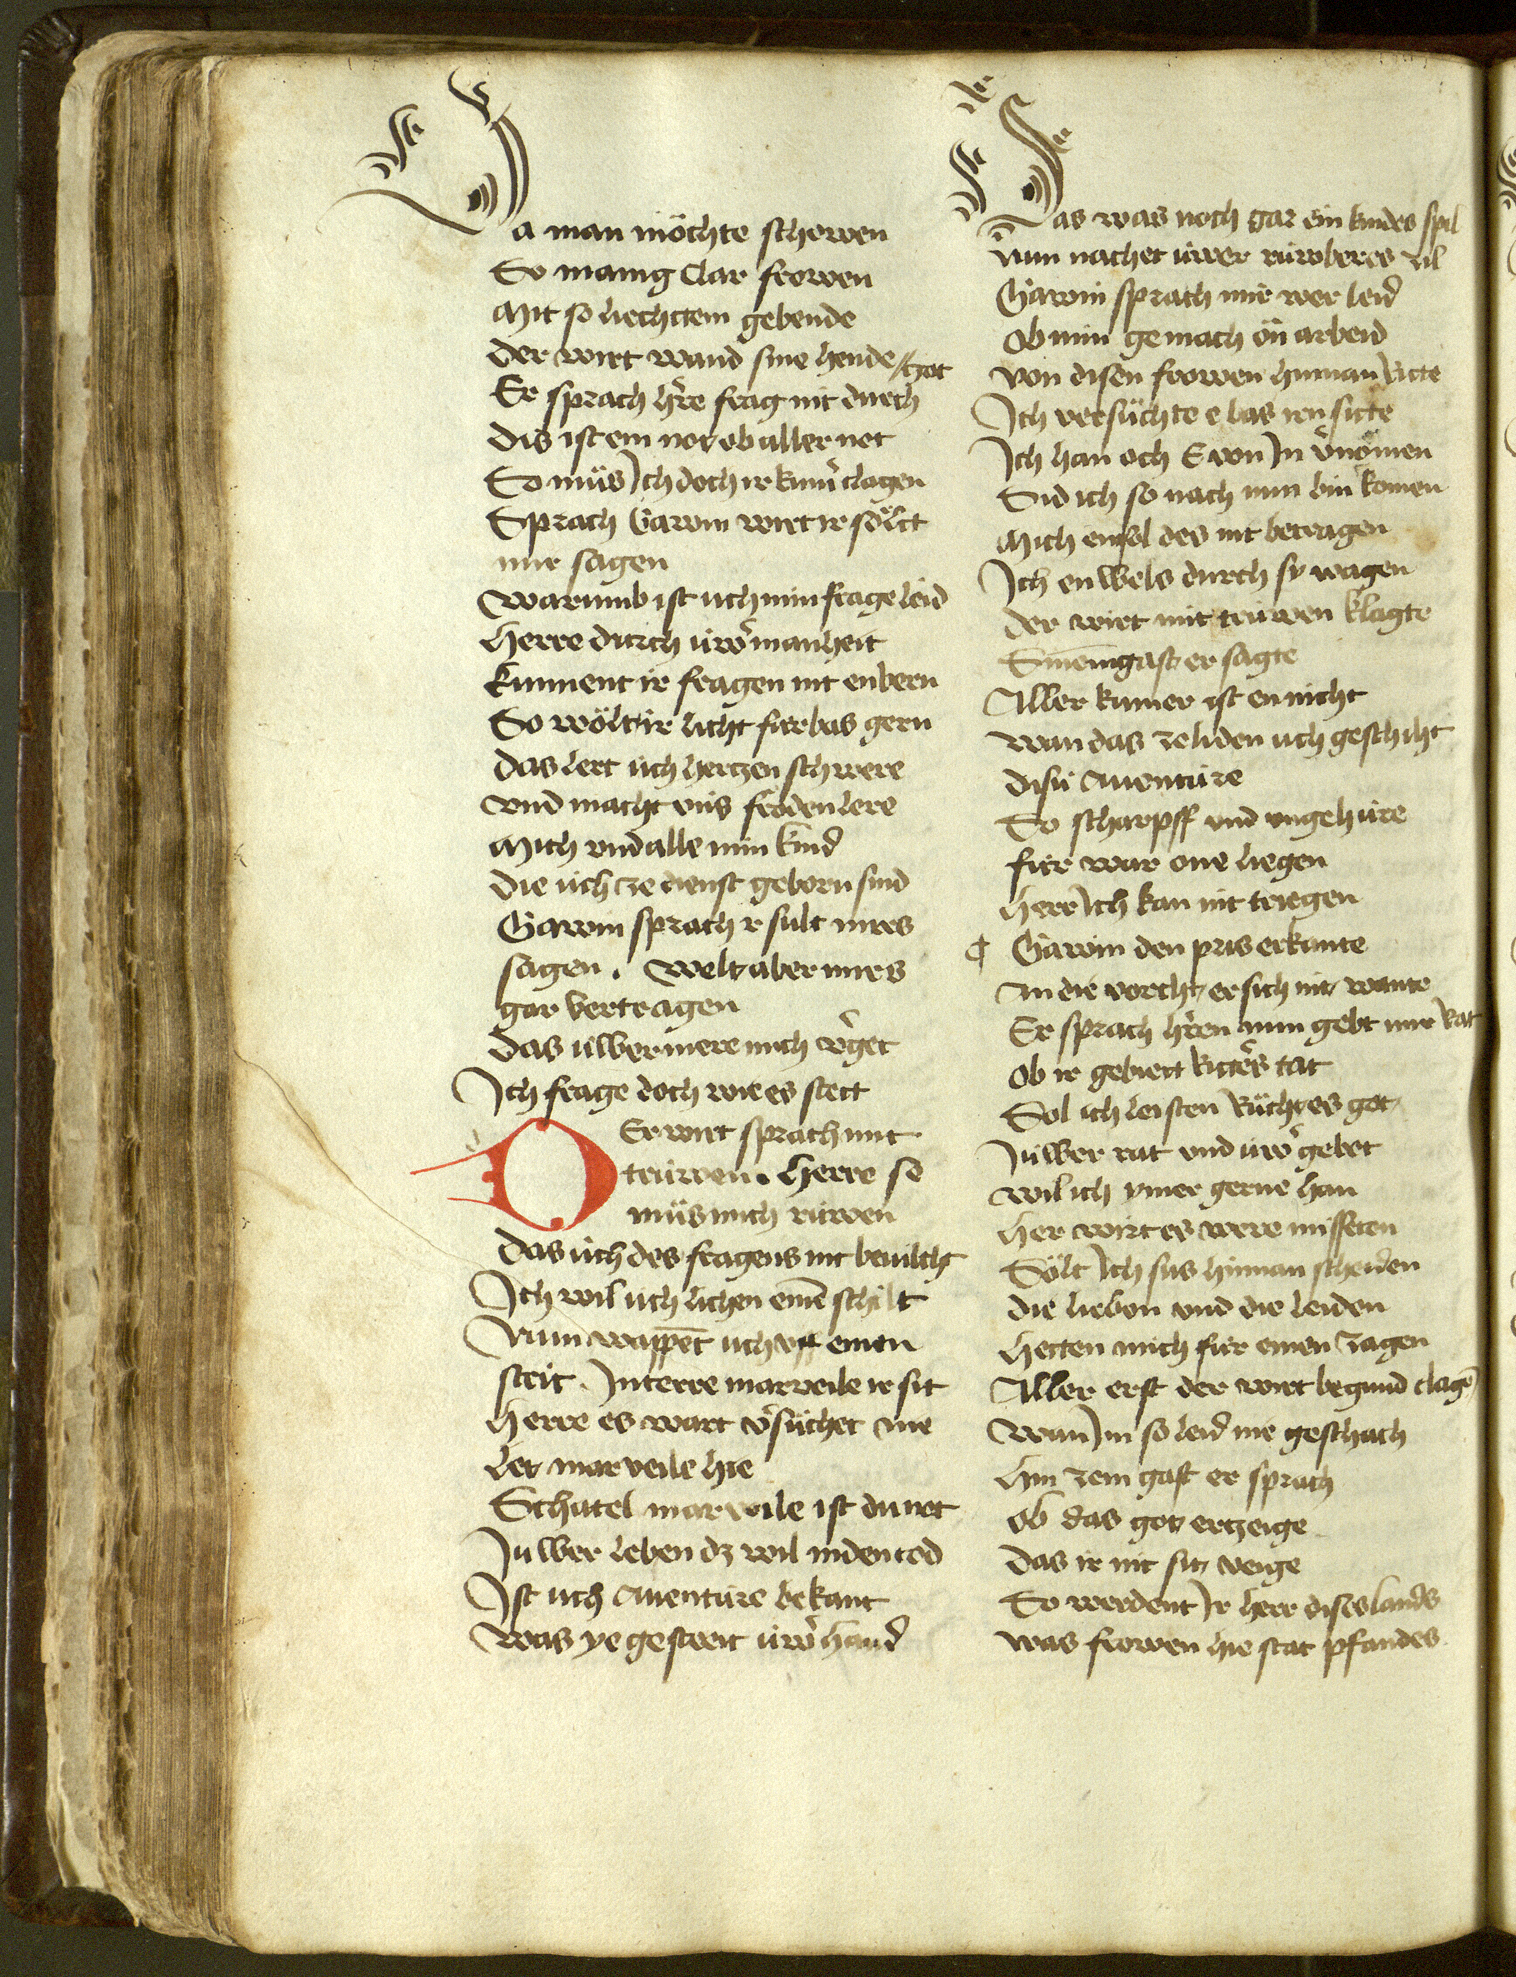 Da man möchte schowen
So manig clar frowen
Mit so liechttem gebende
Der wirt wand sine hende
Er sprach h're frag nit durch //got
Dis ist ein not ob aller not
So müs Ich doch ir kum' clagen
Sprach Gawin wirt ir söllt
mir sagen
Warumb ist uch min frage leid
Herre durch üw' manheit
Kunnent ir fragen nit enbern
So wölt ir licht fürbas gern
Das lert üch hertzen schwere
Vnd macht vns fröden lere
Mich vnd alle min kind
Die üch ze dienst geborn sind
Gawin sprach r sült mirs
sagen. Welt aber mirs
gar vertragen
Das üwber mere mich v'get
Ich frage doch wie es stett
DEr wirt sprach mit
trüwen. Herre so
müs mich rüwen
Das üch des fragens nit bevilcht
Ich wil üch lichen eine schilt
Nun wappet uch vff einen
strit. In terre marveile ir sit
Herre es wart v'süchet nie
Let marveile hie
Schatel marveile ist du not
Iuwer leben dz wil in den tod
Ist uch Auenture bekant
Was ye gestreit üw' hand
Das was noch gar ein kindes spil
Nun nachet üwer rüwberes zil
Gawin sprach mir wer leid
Ob min gemach ön arbeid
Von disen frowen hinnan Ritte
Ich versüchte e bas irn sitte
Ich han och E von In v'nomen
Sid ich so nach nun bin komen
Mich ensol des nit betragen
Ich en wels durch sy wagen
Der wirt mit trüwen klagte
Sinem gast er sagte
Aller kumer ist en nicht
Wan das ze liden uch geschiht
Disü Auentüre
So scharpff vnd vngehüre
für war one liegen
Herr Ich kan nit triegen
¶ Gawin den pris erkante
An die vorcht er sich nit wante
Er sprach h'ren nun gebt mir Rat
Ob ir gebiett Ritt's tat
Sol ich leisten Rüch es got
Iuwer rat vnd üw' gebot
Wil ich ymer gerne han
Her wirt es were missetan
Sölt Ich sus hinnan scheiden
Die lieben vnd die leiden
Hetten mich für einen zagen
Aller erst der wirt begund clage
Wan Im so leid nie geschach
Hin zem gast er sprach
Ob das got erzeige
Das ir nit sit veige
So werdent Ir herr dises lands
Was frowen hie stat pfandes